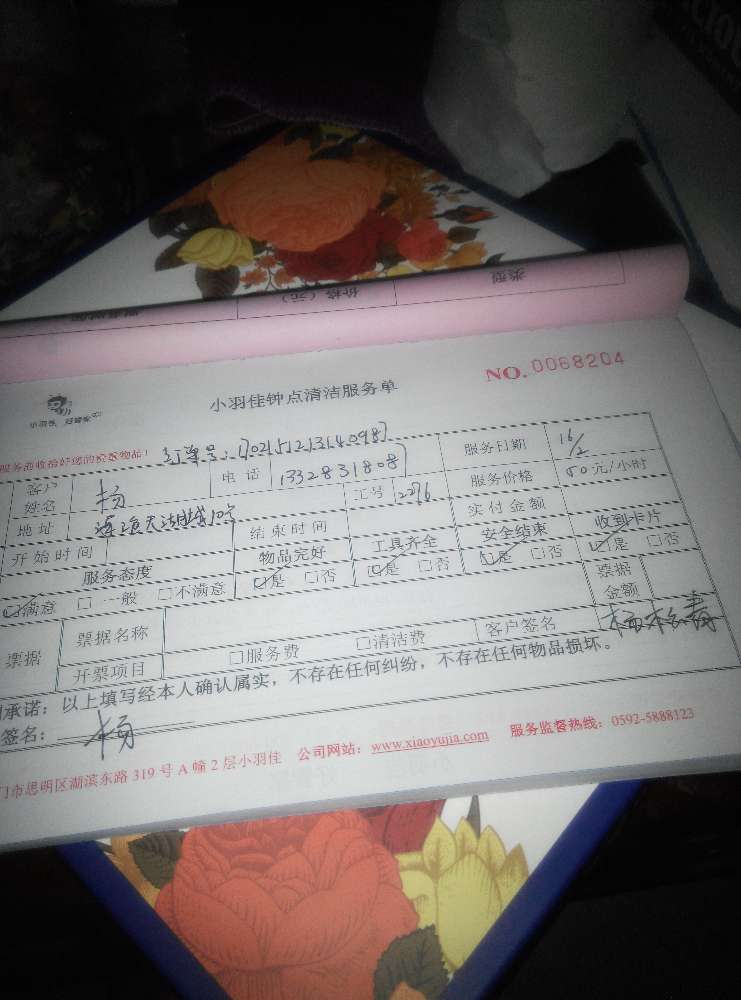 类型
价格（元）
小羽佳 好管家
小羽佳钟点清洁服务单
NO.0068204
服务前收拾好您的贵重物品!
订单号:1702151213140987
客户姓名 杨 电话 13328318087 服务日期 16/2
地址 天湖城 工号 2276 服务价格 50元/小时
开始时间 结束时间 实付金额
服务态度 物品完好 工具齐全 安全结束 收到卡片
☑满意 □一般 □不满意 ☑是 □否 ☑是 □否 ☑是 □否 ☑是 □否
票据 票据名称 票据金额
开票项目 □服务费 □清洁费 客户签名
承诺：以上填写经本人确认属实，不存在任何纠纷，不存在任何物品损坏。
签名： 杨
门市思明区湖滨东路319号A幢2层小羽佳 公司网站：www.xiaoyujia.com 服务监督热线：0592-5888123